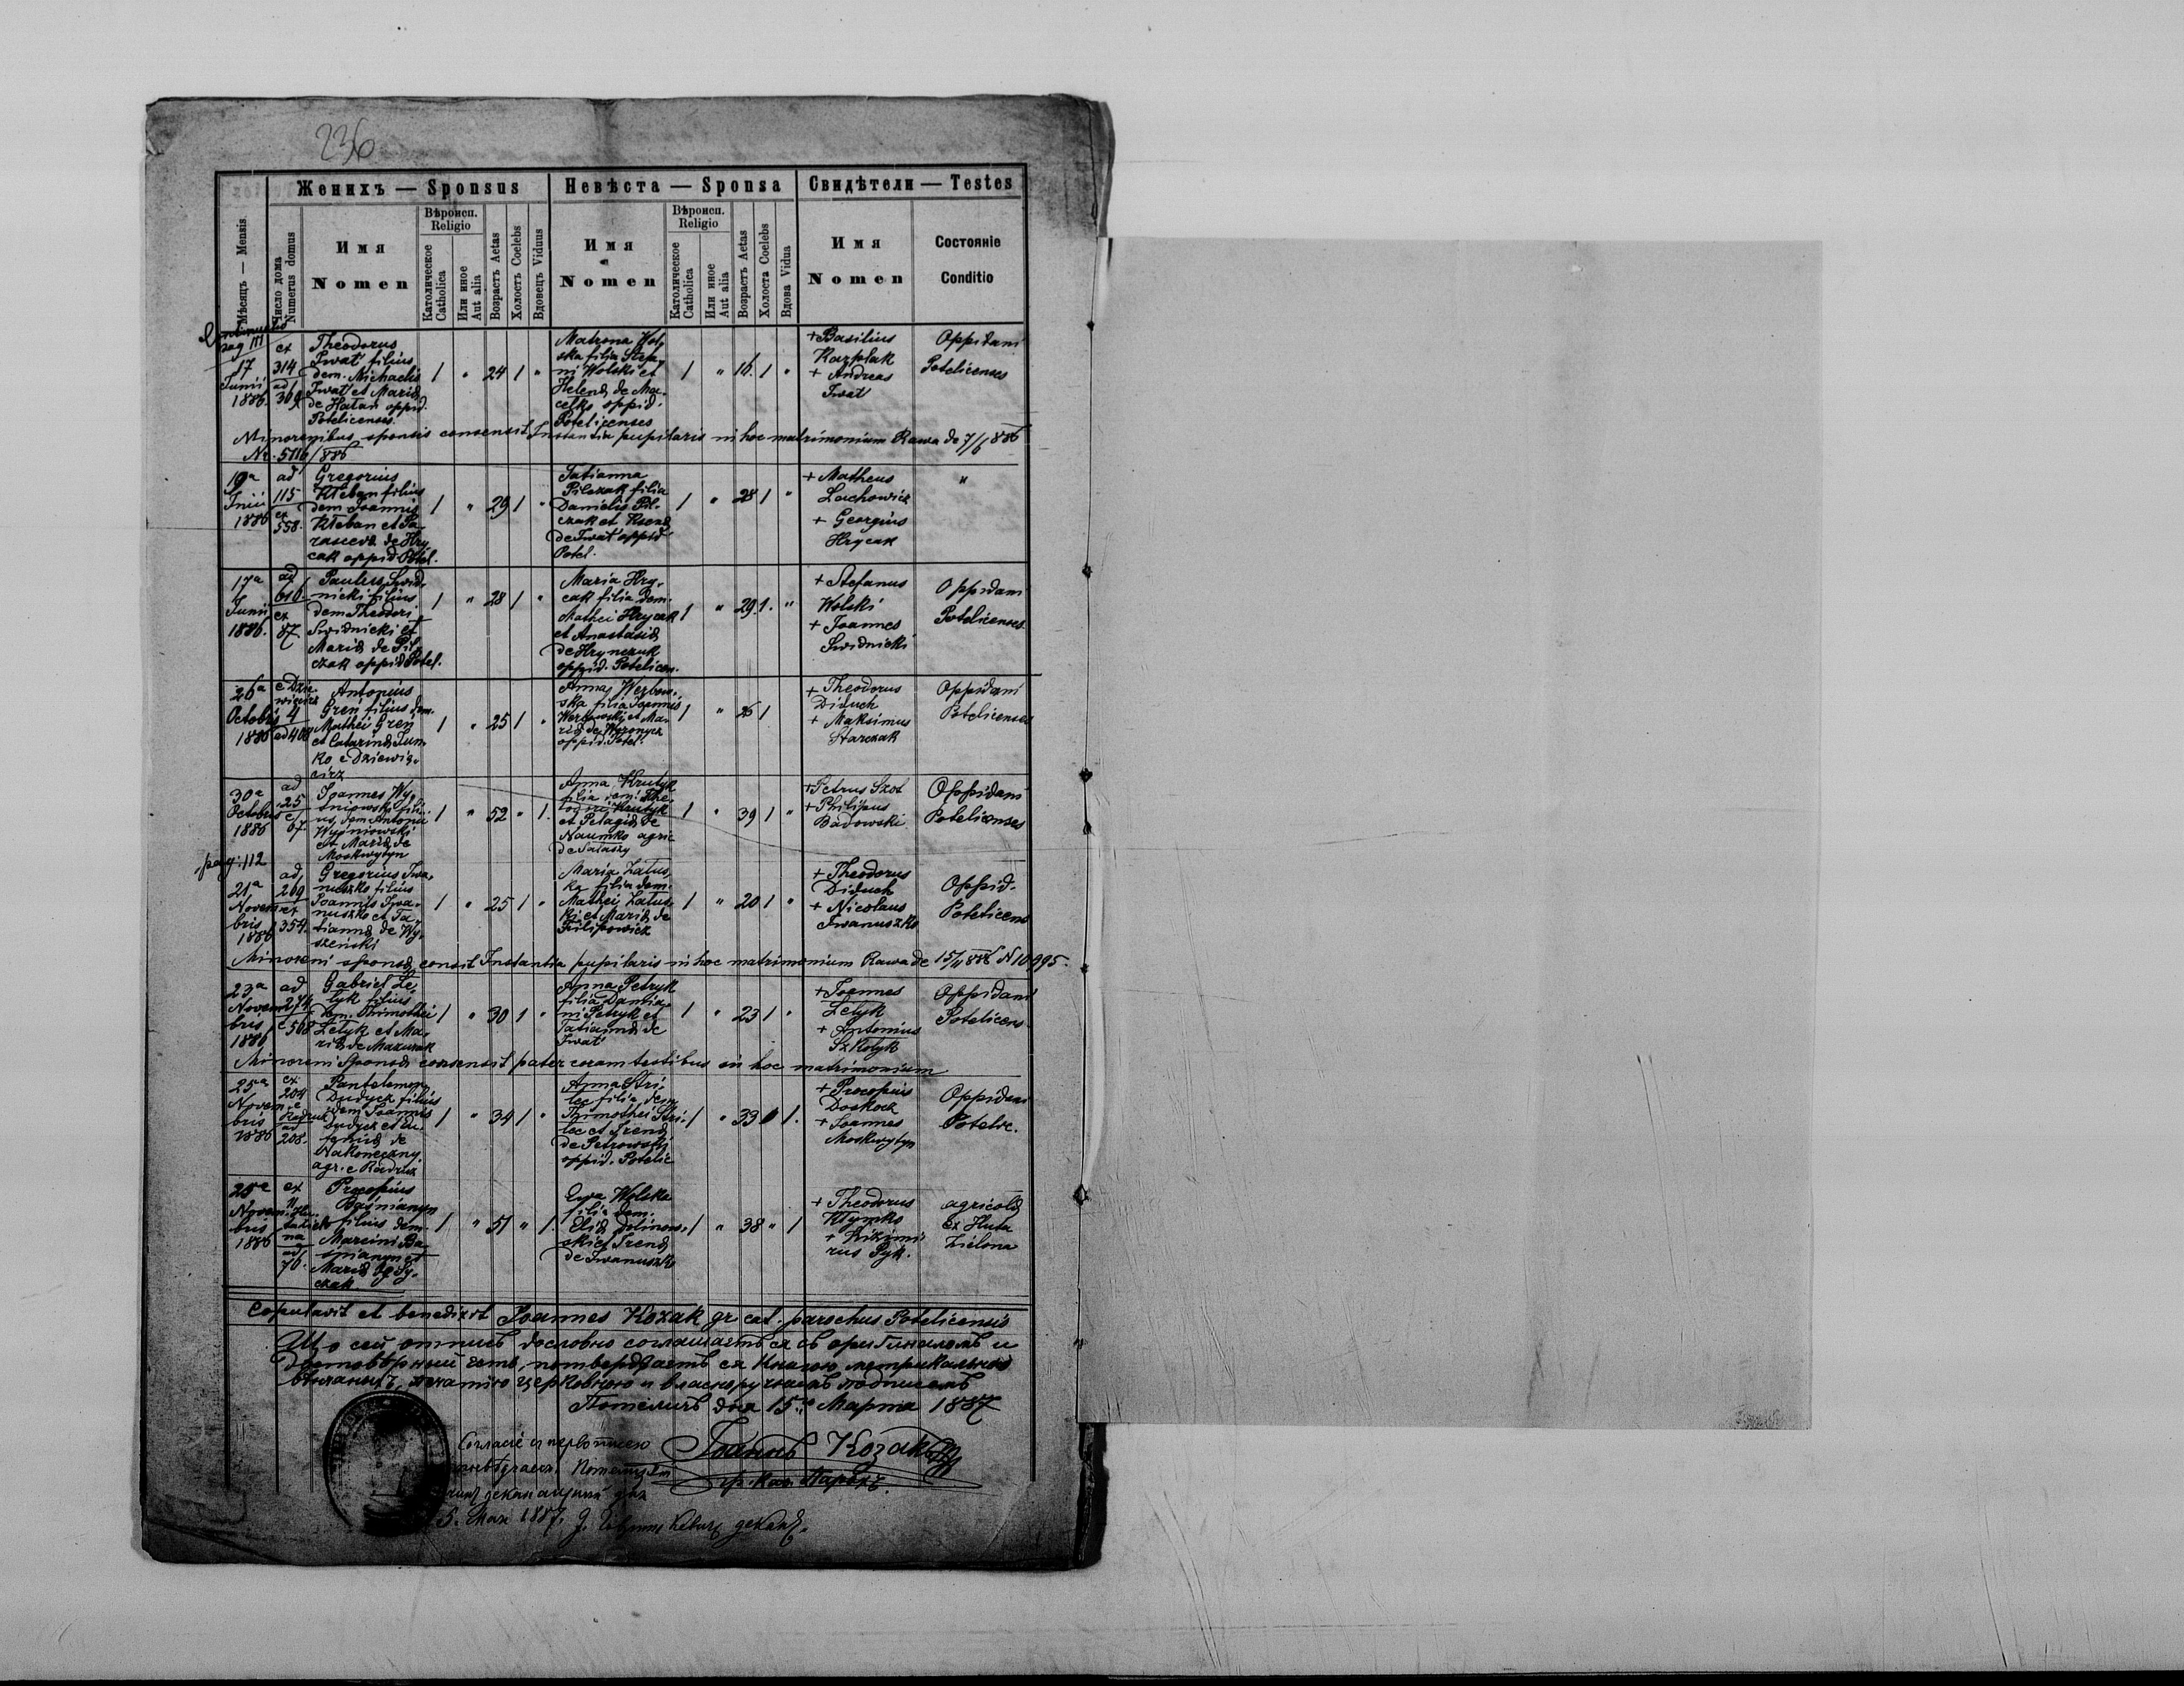 236
Женихъ — Sponsus
Невѣста — Sponsa
Свидѣтели — Testes
Мѣсяцъ — Mensis
Число дома
Numerus domus
Имя
Nomen
Вѣроисп.
Religio
Католическое
Catholica
Или иное
Aut alia
Возрастъ Aetas
Холостъ Coelebs
Вдовецъ Viduus
Имя
Nomen
Вѣроисп.
Religio
Католическое
Catholica
Или иное
Aut alia
Возрастъ Aetas
Холоста Coelebs
Вдова Vidua
Имя
Nomen
Состоянie
Conditio
Continuatio
pag 111
17
Junii
1886.
ex
314
ad
Theodorus
Iwat filius
dem. Michaelis
Iwat et Mariä
de Hatan oppid.
Potelicenses.
1 " 24 1 "
Matrona Wol,
ska filia Stepa,
ni Wolski et
Helenä de Ma,
celko oppid.
Potelicenses
1 " 16. 1 "
+ Basilius
Kazplak
+ Andreas
Iwat
Oppidani
Potelicenses
Minorenibus sponsis consensit Instantia pupilaris in hoc matrimonium Rawa de 7/6 886
Nr. 5116/886
19a
Junii
1886
ad
115
ex
558.
Gregorius
Kleban filius
dem Joannis
Kleban et Pa,
rascevä de Hry
cak oppid Potel.
1 " 29 1 "
Tatianna
Pilczak filia
Danielis Pil,
czak et Ksenä
de Iwat oppid
Potel.
1 " 28 1 "
+ Matheus
Lachowicz
+ Georgius
Hrycak
"
17a
Junii
1886.
ad
610
ex
87.
Paulus Swid,
nicki filius
dem Theodori
Swidnicki et
Mariä de Pil,
czak oppid Potel.
1 " 28 1 "
Maria Hry,
cak filia dem.
Mathei Hrycak
et Anastasiä
de Hrynczuk
oppid. Potelicen.
1 " 29 1. "
+ Stefanus
Wolski
+ Joannes
Swidnicki
Oppidani
Potelicenses
26a
Octobris
1886
e Dzie,
więcirz
4
ad 408
Antonius
Greń filius dem.
Mathei Greń
et Catarinä Lum,
ko e Dziewię,
cirz
1 " 25 1 "
Anna Werbow,
ska filia Joannis
Werbowski et Ma,
riä de Woronycz
oppid. Potel.
1 " 26 1
+ Theodorus
Diduch
+ Maksimus
Starczak
Oppidani
Potelicenses
30a
Octobris
1886
ad
25
e/
67
Joannes Wy,
śniowski fili,
us, dem Antonii
Wyśniowski
et Mariä de
Moskwytyn
1 " 52 " 1.
Anna Krutyk
filia dem. The,
odori Krutyk
et Pelagiä de
Naumko agric
de Salaszy
1 " 39 1 "
+ Petrus Szot
+ Philipus
Badowski
Oppidani
Potelicenses
pag: 112
21a
Novem
bris
1886
ad,
269
ex
354.
Gregorius Iwa,
nuszko filius
Joannis Iwa,
nuszko et Ta,
tiannä de Wy,
szeński
1 " 25 1 "
Maria Zatus,
ka filia dem.
Mathei Zatus,
ki et Mariä de
Filipowicz
1 " 20 1 "
+ Theodorus
Diduch
+ Nicolaus
Iwanuszko
Oppid.
Potelicens
Minoreni sponsä consit Instantia pupilaris in hoc matrimonium Rawa de 15/11 886 N 10995.
23a
Novem
bris
1886
ad
274
e 568
Gabriel Ze,
lyk filius
dem. Thimothei
Zelyk et Ma,
riä de Mazurak
1 " 30 1 "
Anna Petryk
filia Damia,
ni Petryk et
Tatiannä de
Iwat
1 " 23 1 "
+ Joannes
Zelyk
+ Antonius
Szkolyk
Oppidani
Potelicens
Minoreni Sponsä consensit pater coram testibus in hoc matrimonium
25a
Novem
bris
1886
ex
204
e
Radruz
ad
208.
Pantelemon
Dudycz filius
dem Joannis
Dudycz et Eu,
feniä de
Nakoneczny
agr. e Radruz
1 " 34 1 "
Anna Stri,
lec filia dem
Thimothei Stri,
lec et Irenä
de Petrowski
oppid. Potelic
1 " 33 1.
+ Procopius
Doskocz
+ Joannes
Moskwytyn
Oppidani
Potelic.
28a
Novem
bris
1886
ex
11
ad/
70.
Procopius
Baśnianyn
filius dem.
Marcini Ba,
śnianyn et
Mariä de Sy,
czak.
1 " 51 " 1.
Ewa Wolska
filia dem.
Eliä Dolinow,
ski et Irenä
de Iwanuszko
1 " 38 " 1
+ Theodorus
Klymko
+ Kizimi
rus Pyk.
agricolä
ex Huta
Zielona
Copulavit et benedixit Joannes Kozak gr cat. parochus Potelicensis
Що сей отписъ дословно соглашаетъ ся съ оригиналомъ и
достовѣрный есть, потверждаетъ ся Книгою метрикальною
вѣнчаныхъ, печатію церковною и власноручнымъ подписомъ
Потеличъ дня 15го Марта 1887
Іоаннъ Козакъ
гр. кат. Парохъ.
Согласіе съ первописею
5. Мая 1887.
деканъ.